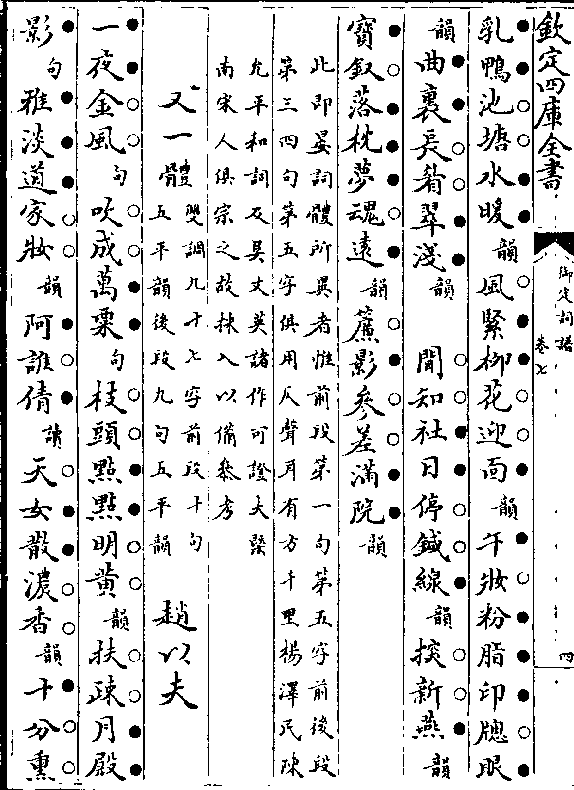 欽定四庫全書
御定詞譜
卷七
四
乳鴨池塘水暖韻風緊柳花迎面韻午妝粉脂印牕眼
韻曲裏長眉翠淺韻　聞知社日停鍼線韻探新燕韻
寶釵落枕夢魂遠韻簾影參差滿院韻
此即晏詞體所異者惟前段第一句第五字前後段
第三四句第五字俱用仄聲耳有方千里楊澤民陳
允平和詞及吳文英諸作可證大槩
南宋人俱宗之故採入以備參考
又一體 雙調九十七字前段十句
五平韻後段九句五平韻
趙以夫
一夜金風句吹成萬粟句枝頭點點明黃韻扶疎月殿
影句雅淡道家妝韻阿誰倩讀天女散濃香韻十分熏